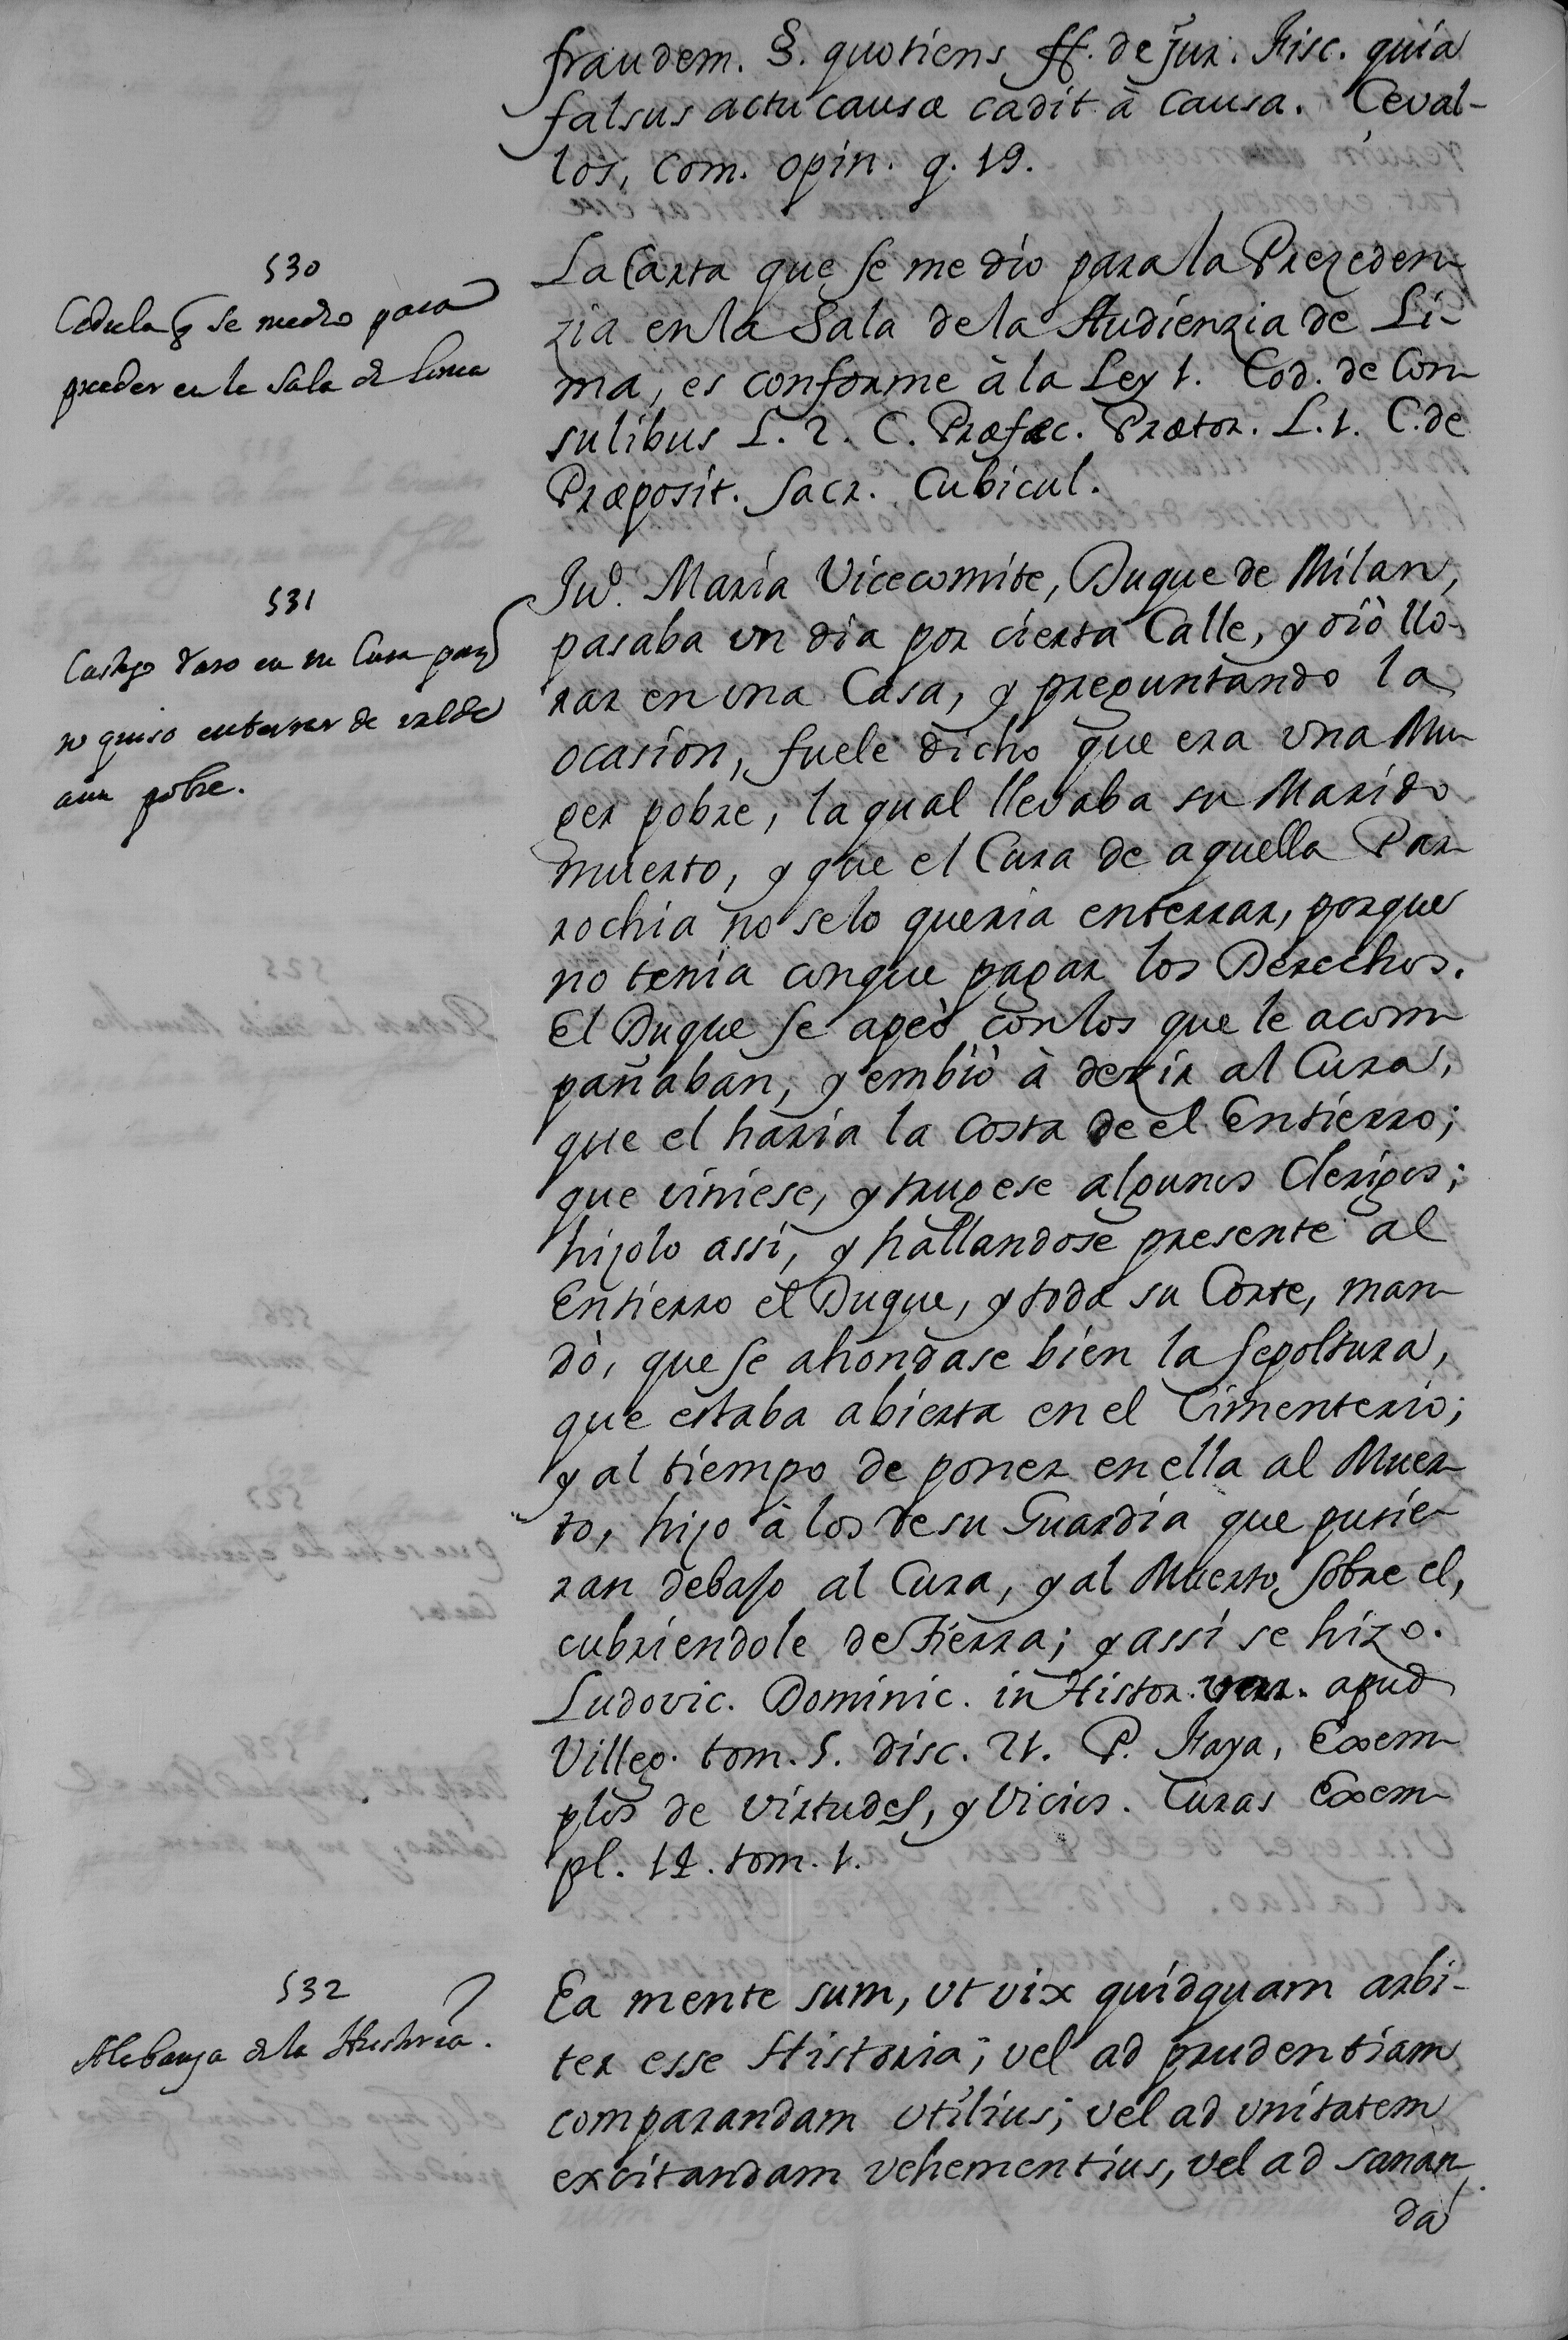 fraudem. §. quotiens ff. de jur. Fisc. quia
falsus actu causæ cadit à causa. Ceval-
los, com. opin. q. 19.
530
Cedula q̃ se me dio para
preceder en la Sala de Lima
La Carta que se me dio para la Prezeden-
zia en la Sala de la Audienzia de Li-
ma, es conforme à la Ley 1. Cod. de Con-
sulibus L. 2. C. Præfec. Prætor. L. 1. C. de
Præposit. Sacr. Cubicul.
531
Castigo raro en un Cura porq̃
no quiso enterrar de valde
a un pobre.
Juº. Maria Vicecomite, Duque de Milan,
pasaba un dia por cierta Calle, y oiò llo-
rar en una Casa, y preguntando la
ocasion, fuele dicho que era una Mu-
ger pobre, la qual llevaba su Marido
muerto, y que el Cura de aquella Par-
rochia no se lo queria enterrar, porque
no tenia conque pagar los Derechos.
El Duque se apeò con los que le acom-
pañaban, y embiò à dezir al Cura,
que el haria la costa de el Entierro;
que viniese, y trugese algunos Clerigos;
hizolo assi, y hallandose presente al
Entierro el Duque, y toda su Corte, man-
dò, que se ahondase bien la sepoltura,
que estaba abierta en el Cimenterio;
y al tiempo de poner en ella al Muer-
to, hizo à los de su Guardia que pusie-
ran debajo al Cura, y al Muerto sobre el,
cubriendole de tierra; y assi se hizo.
Ludovic. Dominic. in Histor. var. apud
Villeg. tom. 5. disc. 21. P. Faya, Exem-
plos de virtudes, y Vicios. Curas Exem-
pl. 12. tom. 1.
532
Alabanza de la Historia.
Ea mente sum, ut vix quidquam arbi-
ter esse Historia; vel ad prudentiam
comparandam utilius; vel ad unitatem
excitandam vehementius, vel ad sanan-
da